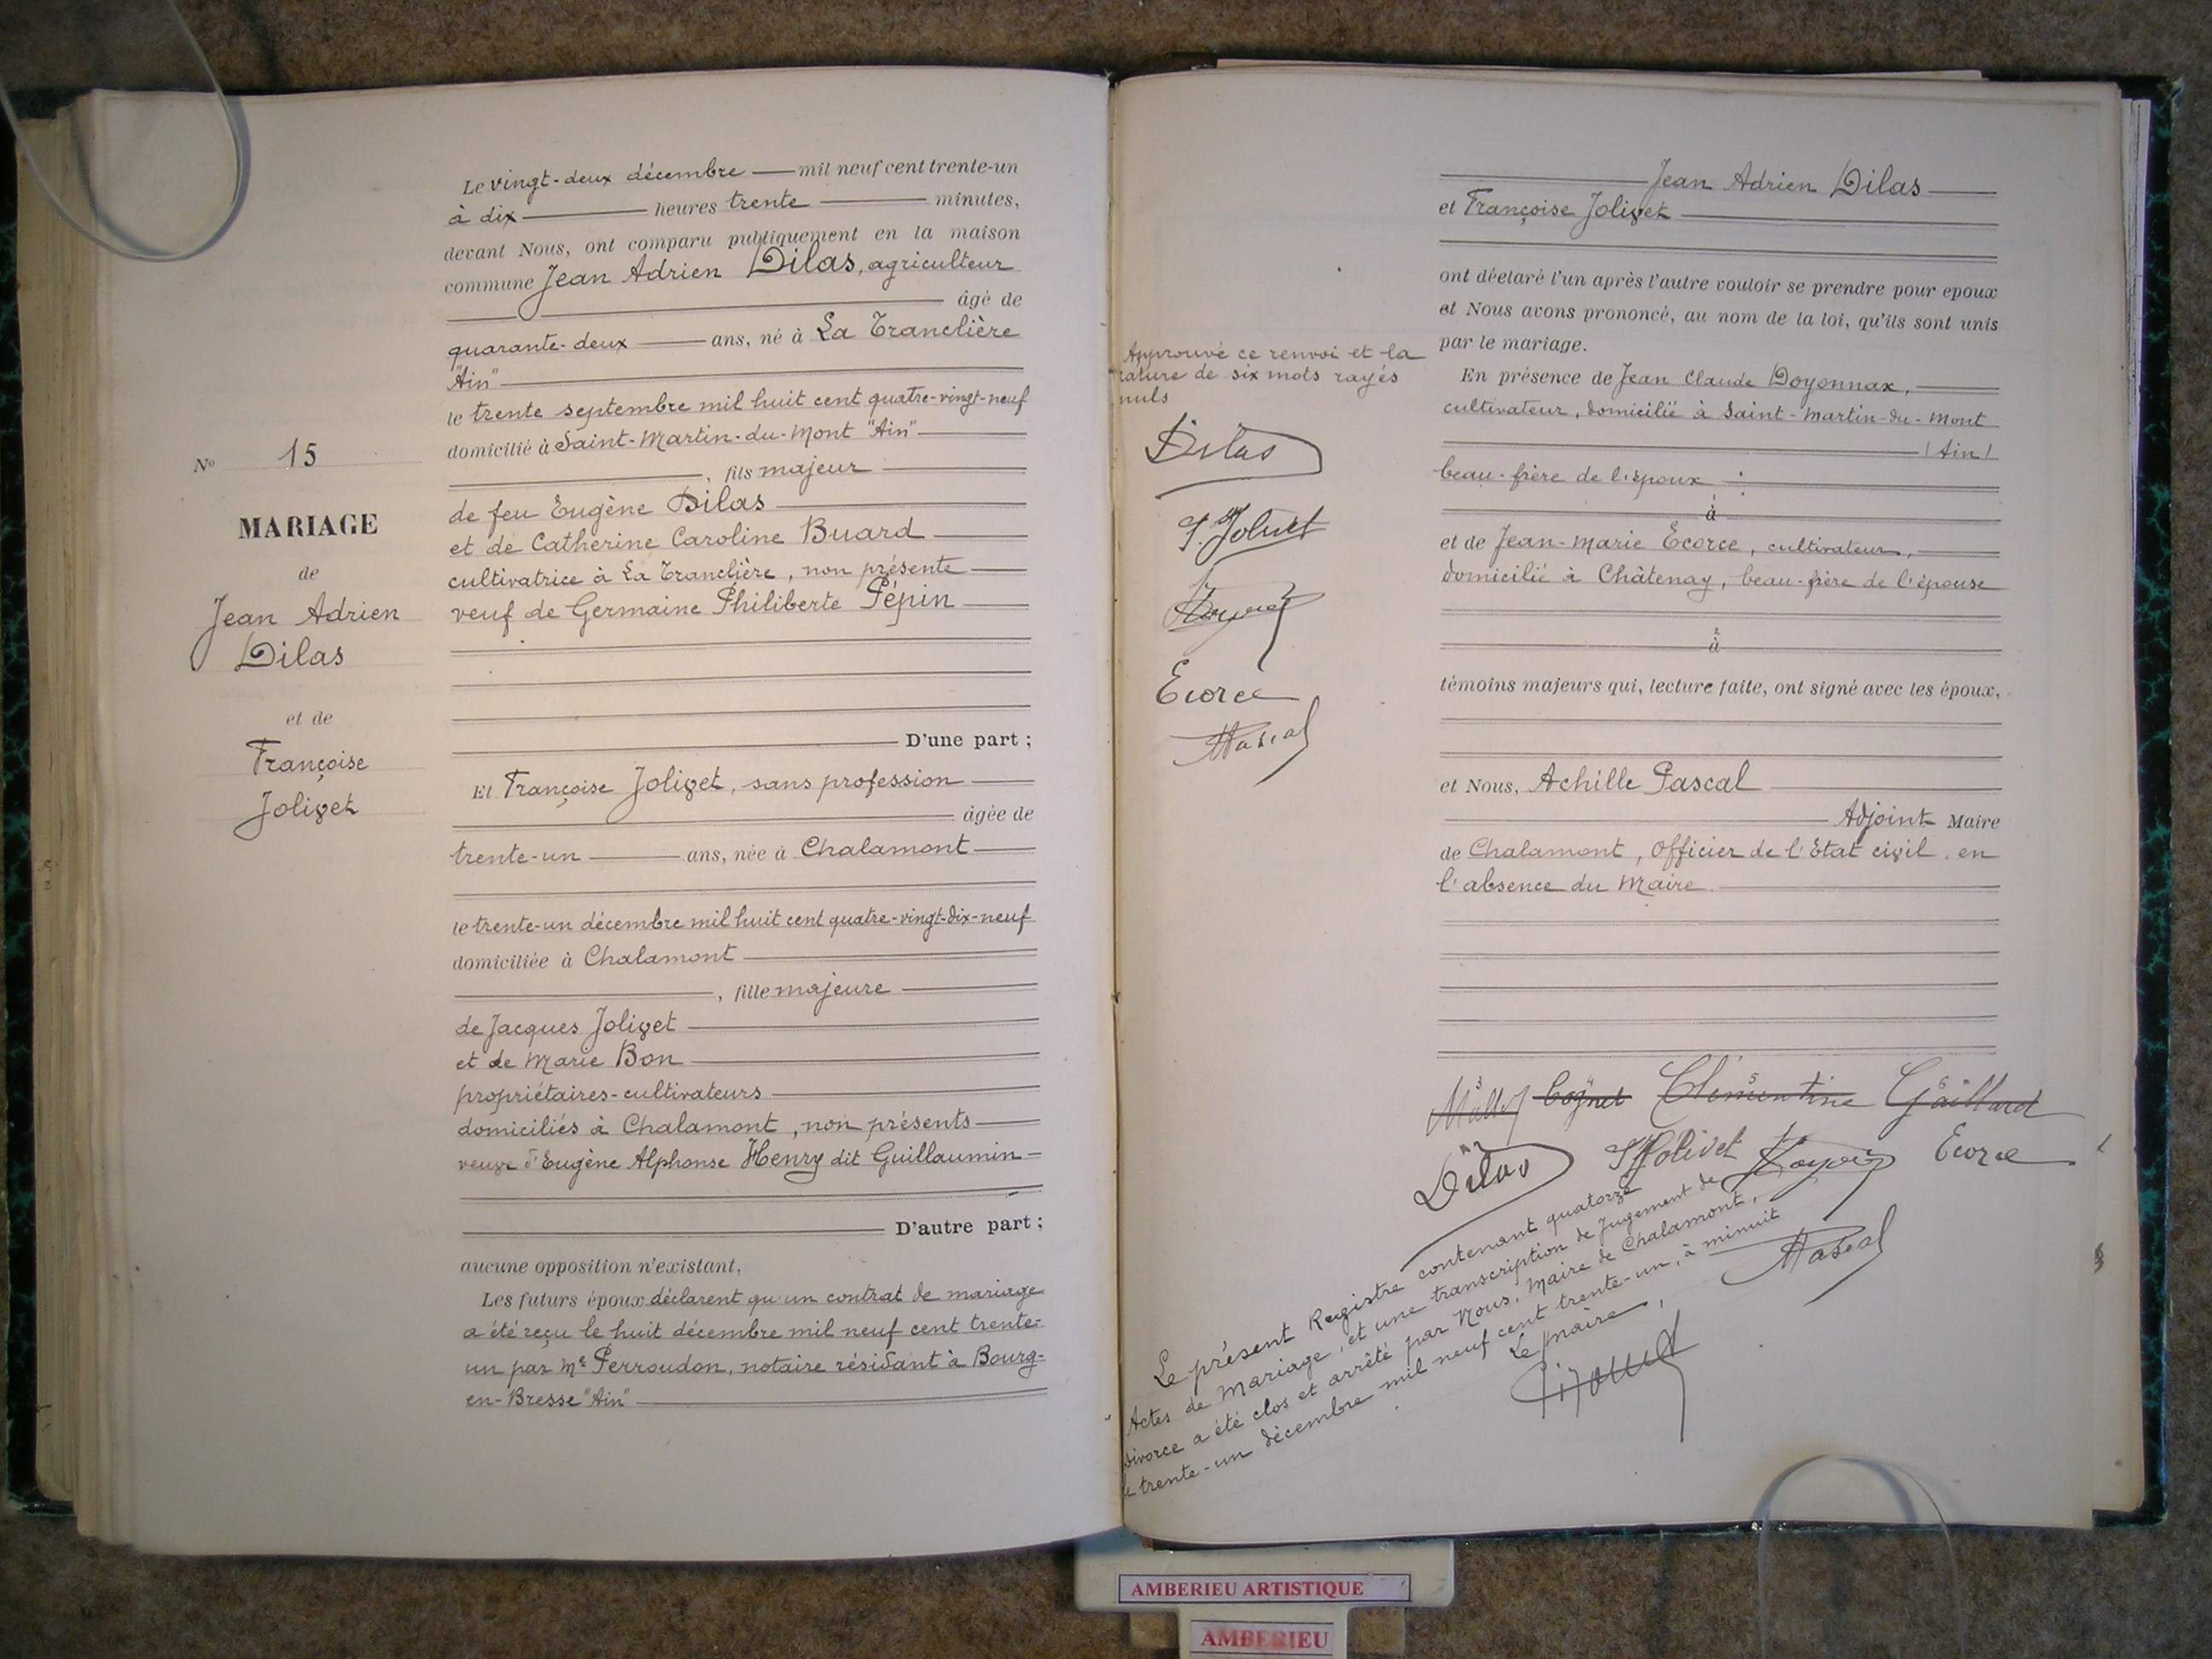 Le vingt-deux décembre mil neuf cent trente-un
à dix heures trente minutes,
devant Nous, ont comparu publiquement en la maison
commune Jean Adrien Dilas, agriculteur
âgé de
quarante-deux ans, né à La Tranclière
"Ain"
le trente septembre mil huit cent quatre-vingt-neuf
domicilié à Saint-Martin-du-Mont "Ain"
, fils majeur
de feu Eugène Dilas
et de Catherine Caroline Buard
cultivatrice à La Tranclière, non présente
veuf de Germaine Philiberte Pépin
D'une part ;
Et Françoise Jolivet, sans profession
âgée de
trente-un ans, née à Chalamont
le trente-un décembre mil huit cent quatre-vingt-dix-neuf
domiciliée à Chalamont
, fille majeure
de Jacques Jolivet
et de Marie Bon
propriétaires-cultivateurs
domiciliés à Chalamont, non présents
veuve d'Eugène Alphonse Henry dit Guillaumin
D'autre part ;
aucune opposition n'existant,
Les futurs époux déclarent qu'un contrat de mariage
a été reçu le huit décembre mil neuf cent trente-
un par Me Perroudon, notaire résidant à Bourg-
en-Bresse "Ain"
No 15
MARIAGE
de
Jean Adrien
Dilas
et de
Françoise
Jolivet
Jean Adrien Dilas
et Françoise Jolivet
ont déclaré l'un après l'autre vouloir se prendre pour epoux
et Nous avons prononcé, au nom de la loi, qu'ils sont unis
par le mariage.
En présence de Jean Claude Doyonnax,
cultivateur, domicilié à Saint-Martin-du-Mont
(Ain)
beau-frère de l'époux
à
et de Jean-Marie Ecorce, cultivateur,
domicilié à Châtenay, beau-frère de l'épouse
à
témoins majeurs qui, lecture faite, ont signé avec les époux,
et Nous, Achille Pascal
Adjoint Maire
de Chalamont, Officier de l'Etat civil, en
l'absence du Maire.
Approuvé ce renvoi et la
rature de six mots rayés
nuls
Dilas
F. Jolivet
Ecorce
Pascal
Cognet Clémentine Gaillard
Dilas F Jolivet Ecorce
Pascal
Le présent Registre contenant quatorze
Actes de Mariage, et une transcription de Jugement de
divorce a été clos et arrêté par Nous, Maire de Chalamont,
le trente-un décembre mil neuf cent trente-un, à minuit
Le Maire,
AMBERIEU ARTISTIQUE
AMBERIEU